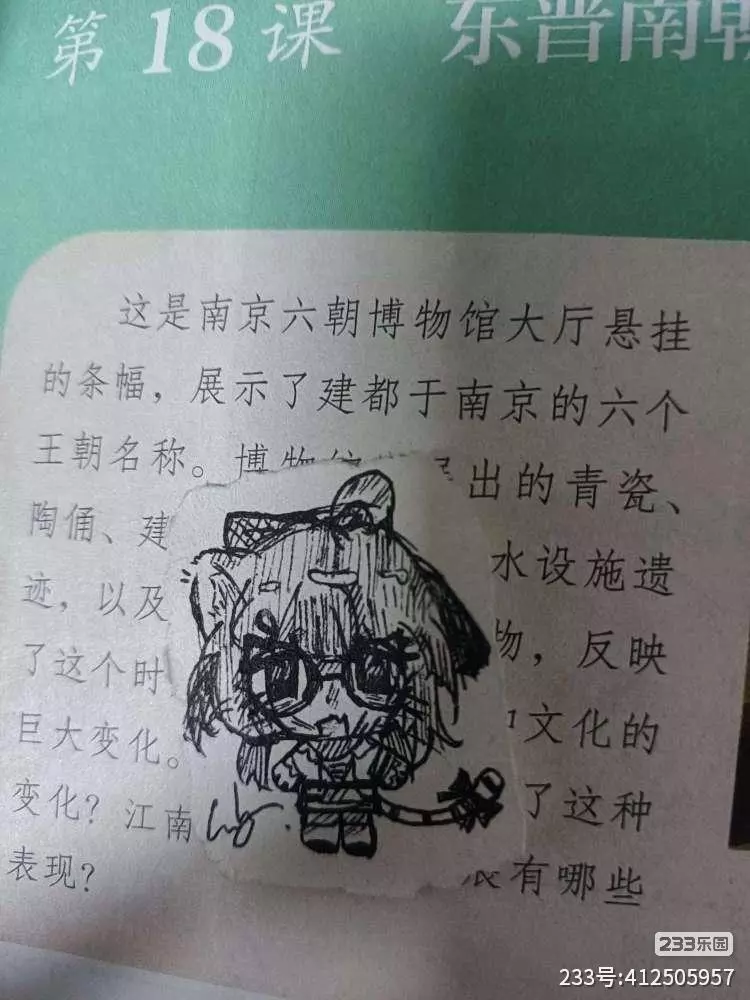 第18课 东晋南朝
这是南京六朝博物馆大厅悬挂
的条幅，展示了建都于南京的六个
王朝名称。博物 出的青瓷、
陶俑、建 水设施遗
迹，以及 物，反映
了这个时 文化的
巨大变化。 了这种
变化？江南 有哪些
表现？
233乐园
233号:412505957